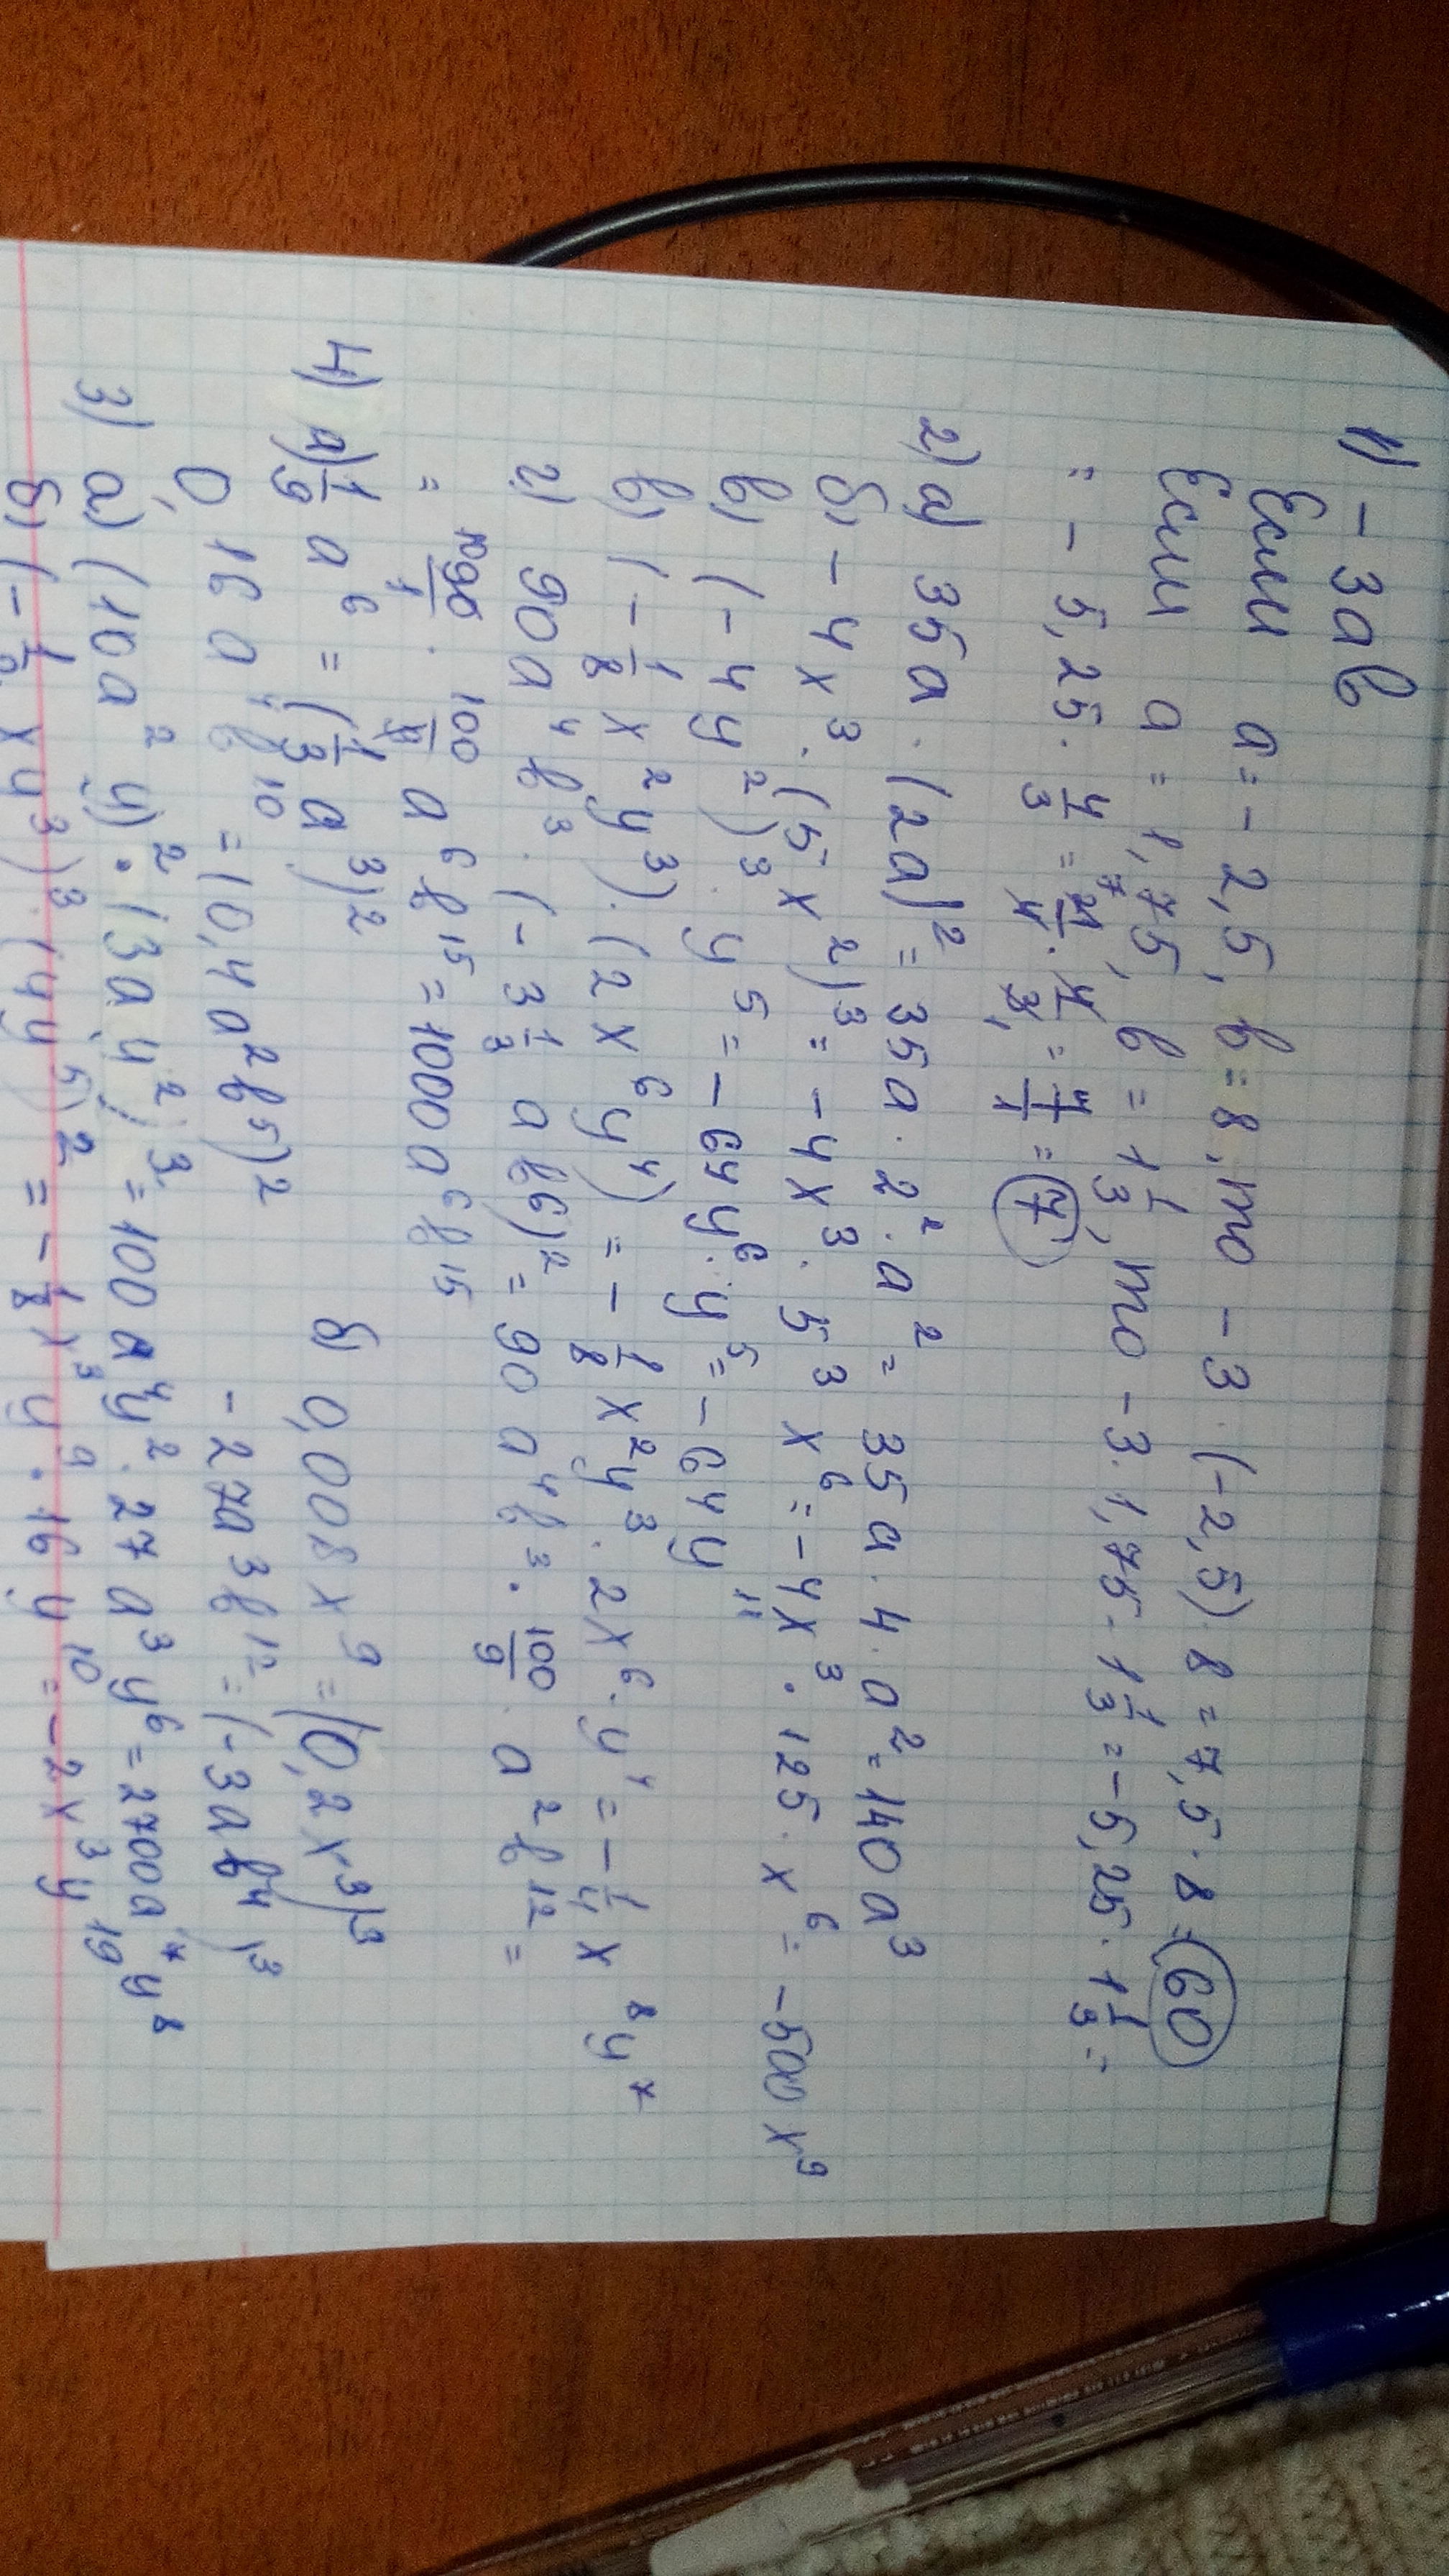 1) -3ab
Если a = -2,5, b = 8, то -3 · (-2,5) · 8 = 7,5 · 8 = 60
Если a = 1,75, b = 1 1/3, то -3 · 1,75 · 1 1/3 = -5,25 · 1 1/3 =
= -5,25 · 4/3 = 21/4 · 4/3 = 7/1 = 7
2) а) 35a · (2a)² = 35a · 2² · a² = 35a · 4 · a² = 140a³
б) -4x³ · (5x²)³ = -4x³ · 5³ x⁶ = -4x³ · 125 · x⁶ = -500x⁹
в) (-4y²)³ · y⁵ = -64y⁶ · y⁵ = -64y¹¹
в) (-1/8 x²y³) · (2x⁶y⁴) = -1/8 x²y³ · 2x⁶ · y⁴ = -1/4 x⁸y⁷
г) 90a⁴b³ · (-3 1/3 ab⁶)² = 90a⁴b³ · 100/9 · a²b¹² =
= 90/1 · 100/9 a⁶b¹⁵ = 1000a⁶b¹⁵
4) а) 1/9 a⁶ = (1/3 a³)² б) 0,008x⁹ = (0,2x³)³
0,16a⁴b¹⁰ = (0,4a²b⁵)² -27a³b¹² = (-3ab⁴)³
3) а) (10a²y)² · (3ay²)³ = 100a⁴y² · 27a³y⁶ = 2700a⁷y⁸
б) (-1/2 xy³)³ · (4y⁵)² = -1/8 x³y⁹ · 16y¹⁰ = -2x³y¹⁹